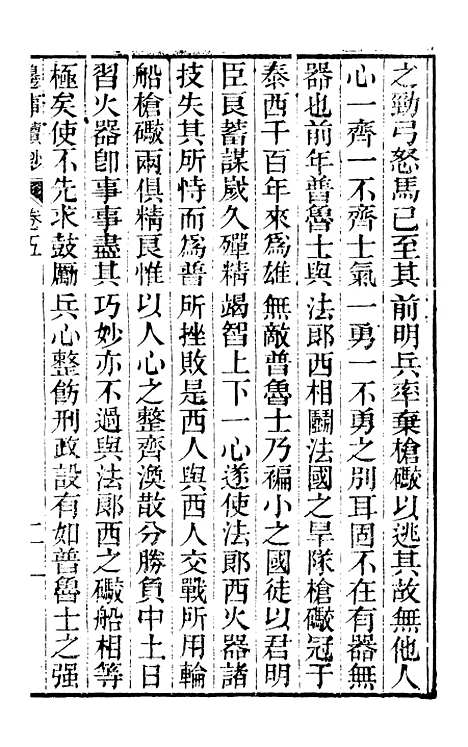 之勁弓怒馬已至其前明兵率棄槍礮以逃其故無他人
心一齊一不齊士氣一勇一不勇之別耳固不在有器無
器也前年普魯士與法郎西相鬭法國之旱隊槍礮冠于
泰西千百年來爲雄無敵普魯士乃褊小之國徒以君明
臣良蓄謀歲久殫精竭智上下一心遂使法郎西火器諸
技失其所恃而爲普所挫敗是西人與西人交戰所用輪
船槍礮兩俱精良惟以人心之整齊渙散分勝負中土日
習火器卽事事盡其巧妙亦不過與法郎西之礮船相等
極矣使不先求鼓勵兵心整飭刑政設有如普魯士之强
邊事續鈔 卷五